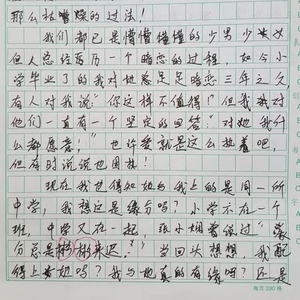 那么枯燥的过法！
我们都已是懵懵懂懂的少男少女
但人总经历一个暗恋的过程，如今小
学毕业了的我对她足足暗恋三年之久，
有人对我说"你这样不值得！"但我我对
他们一直有一个坚定的回答"对她我什
么都愿意！"也许爱就是这么执着吧，
但有时说说也困扰！
现在我也得知她与我上的是同一所
中学，我想这是缘分吗？小学不在一个
班，中学又在一起，张小娴曾说过"缘
分总是 来迟。"当回头想想，我配
得上她吗？我与她真的有缘吗？还是
每页200格